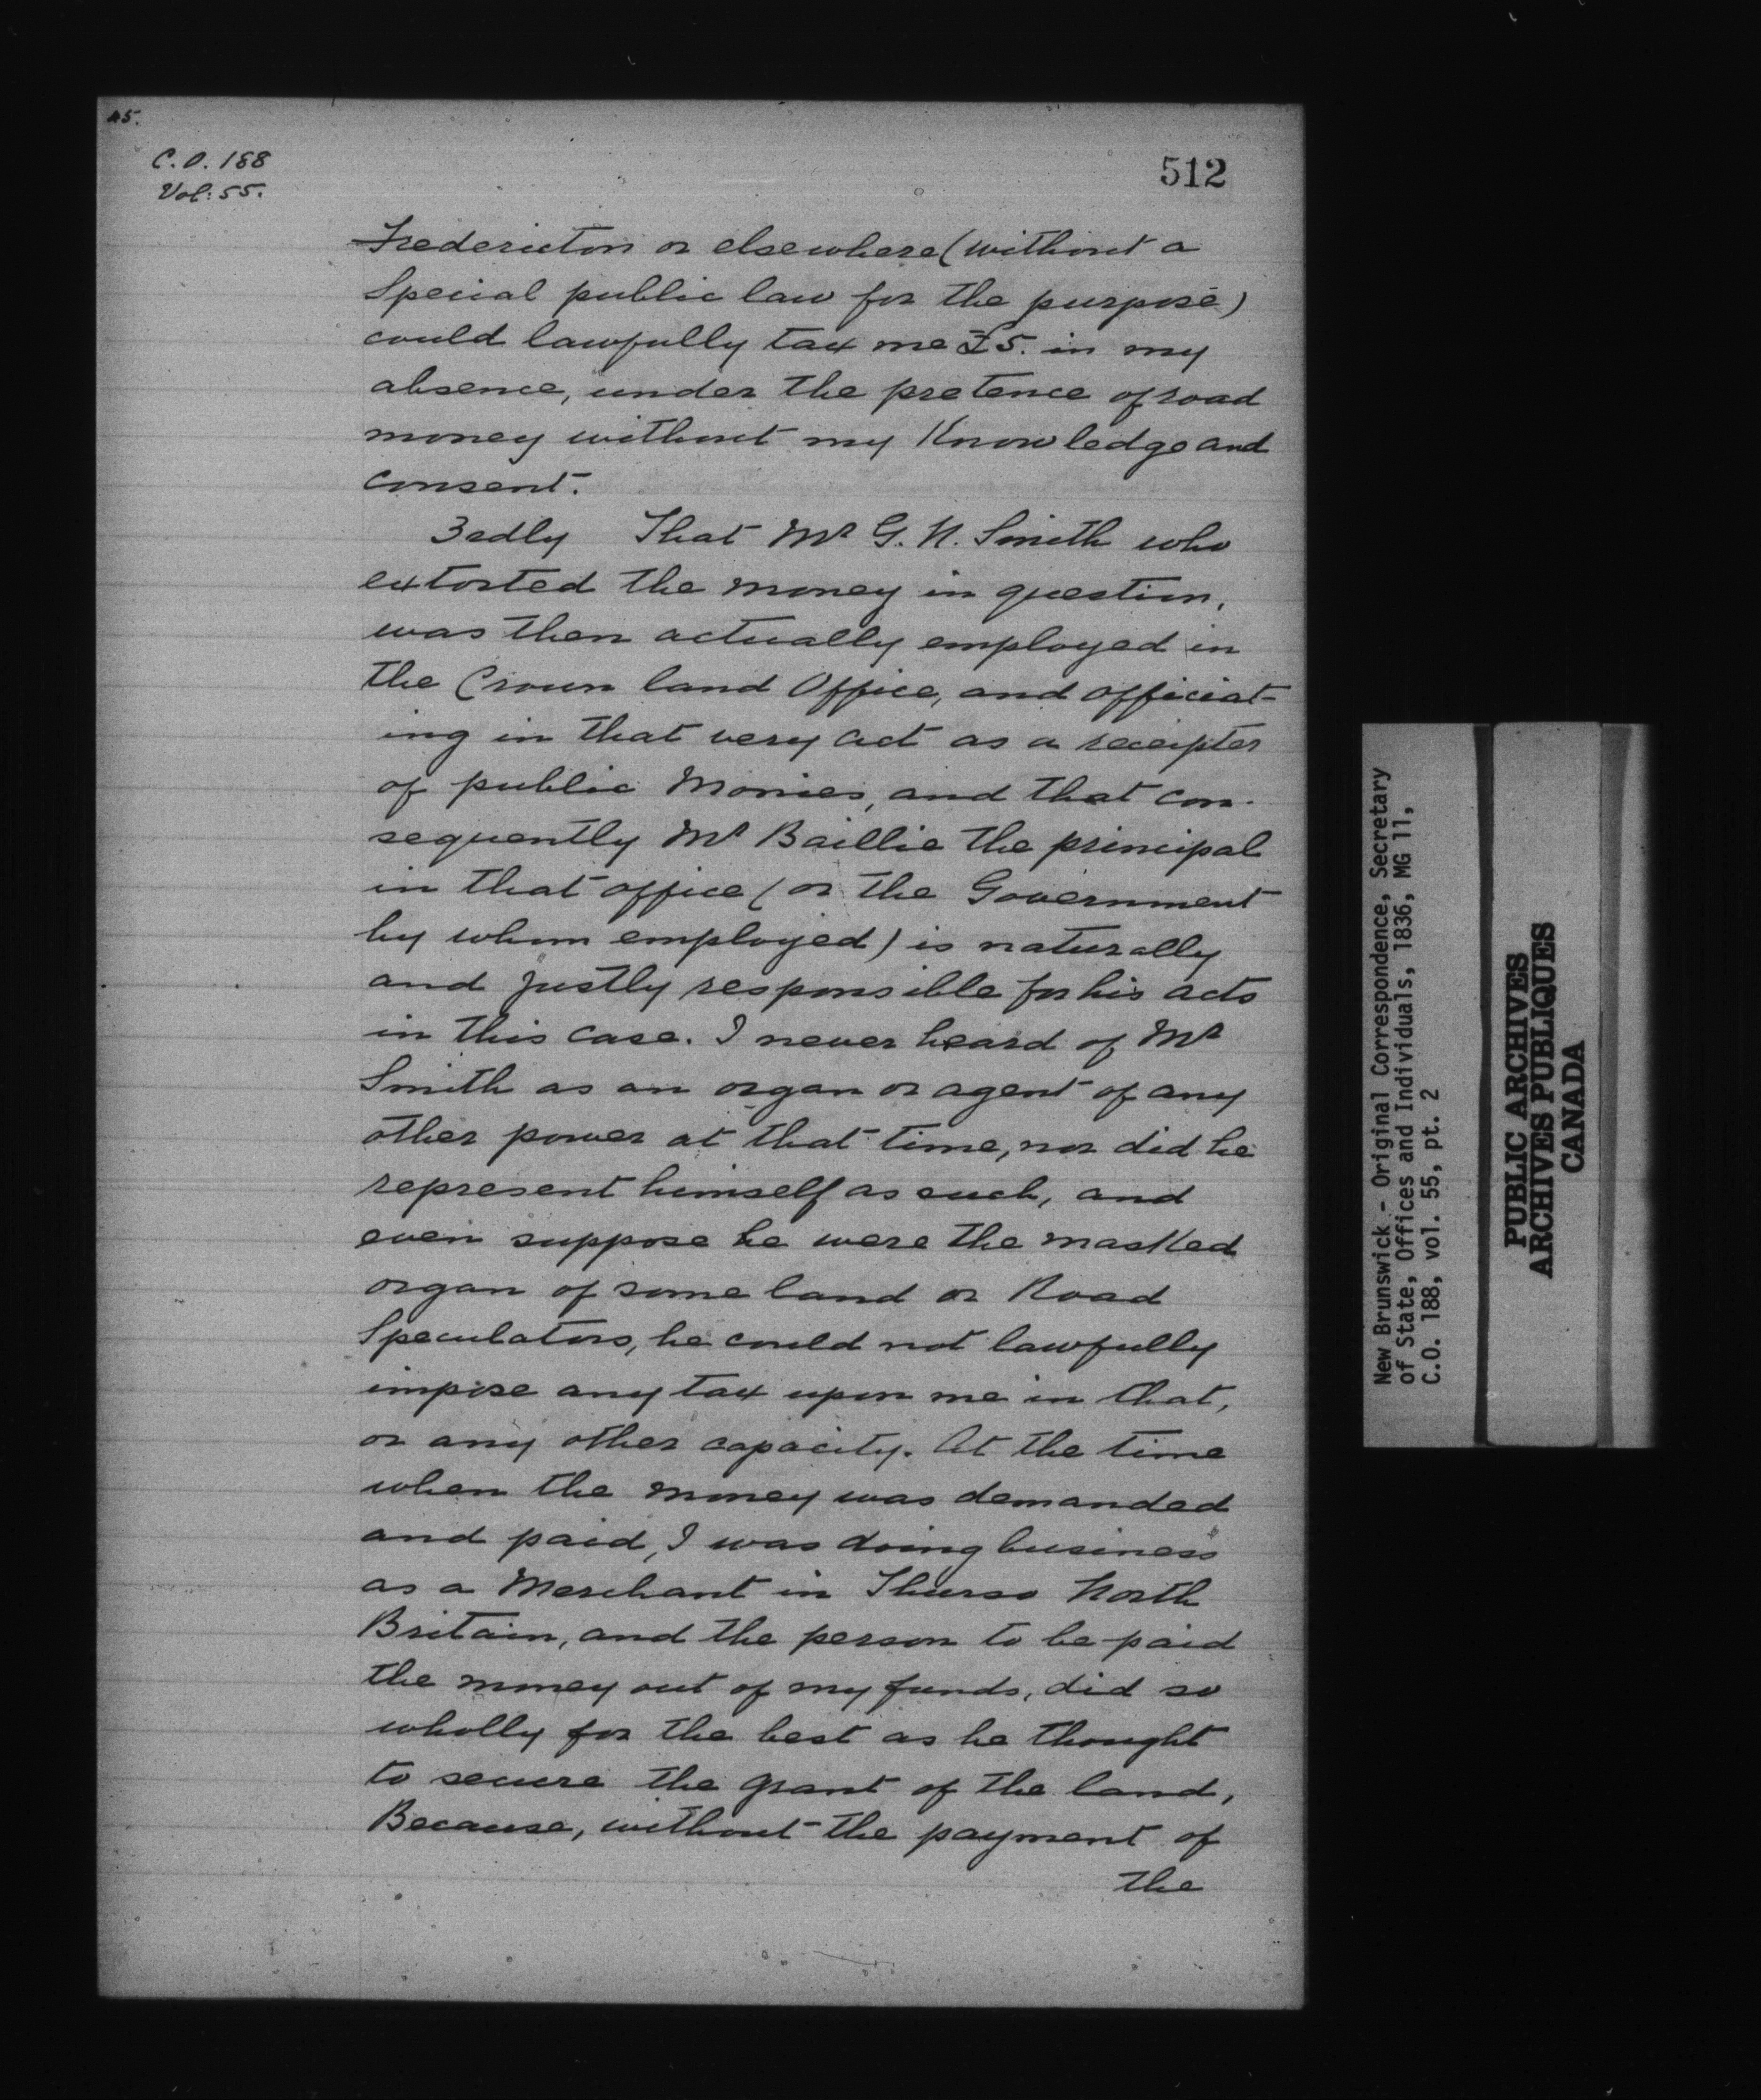 45.
C.O. 188
Vol: 55.
512
Fredericton or elsewhere (without a
Special public law for the purpose)
could lawfully tax me £5. in my
absence, under the pretence of road
money without my Knowledge and
consent.
3rdly That Mr G. N. Smith who
extorted the money in question,
was then actually employed in
the Crown land Office, and officiat-
ing in that very act as a receipter
of public Monies, and that con-
sequently Mr Baillie the principal
in that office (or the Government
by whom employed) is naturally
and justly responsible for his acts
in this case. I never heard of Mr
Smith as an organ or agent of any
other power at that time, nor did he
represent himself as such, and
even suppose he were the masked
organ of some land or Road
Speculators, he could not lawfully
impose any tax upon me in that,
or any other capacity. At the time
when the money was demanded
and paid, I was doing business
as a Merchant in Thurso North
Britain, and the person to be paid
the money out of my funds, did so
wholly for the best as he thought
to secure the grant of the land,
Because, without the payment of
the
New Brunswick - Original Correspondence, Secretary
of State, Offices and Individuals, 1836, MG 11,
C.O. 188, vol. 55, pt. 2
PUBLIC ARCHIVES
ARCHIVES PUBLIQUES
CANADA